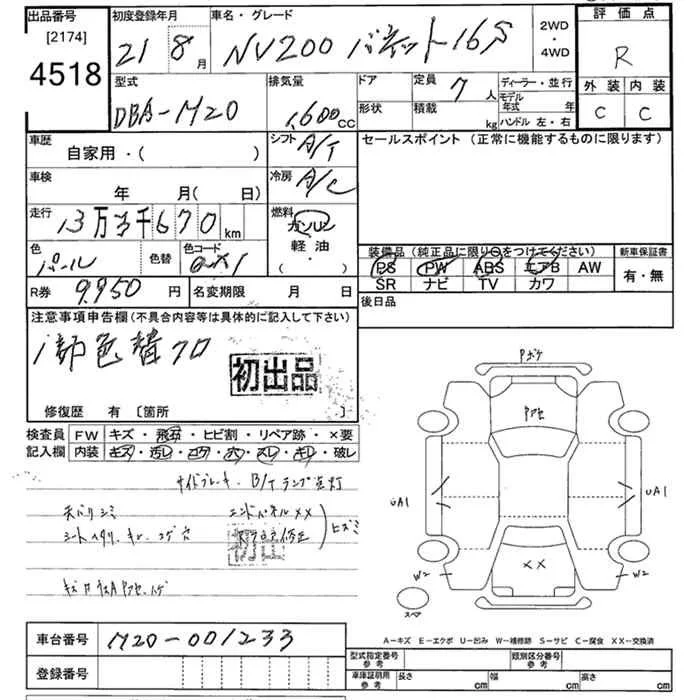 出品番号 初度登録年月 車名・グレード 2WD・4WD 評価点
[2174]
4518
21 8月 NV200 バネット16S R
型式 排気量 ドア 定員 7人 ディーラー・並行 外装 内装
DBA-M20 1,600cc 形状 積載 kg モデル年式 年 ハンドル 左・右 C C
車歴 自家用・( ) シフト A/T セールスポイント (正常に機能するものに限ります)
車検 年 月(日) 冷房 A/C
走行 13万3千670km 燃料 ガソリン・軽油・( )
色 パール 色替 色コード 装備品(純正品に限り○をつけてください) 新車保証書
PS PW ABS エアB AW 有・無
SR ナビ TV カワ
R券 9,950円 名変期限 月 日 後日品
注意事項申告欄(不具合内容等は具体的に記入して下さい)
1部色替クロ
初出品
修復歴 有 [箇所 ]
検査員 FW キズ・飛石・ヒビ割・リペア跡・×要
記入欄 内装 キズ・汚レ・コゲ・穴・スレ・キレ・破レ
サイドブレーキ、B/Tランプ点灯
天バリシミ エンドパネルXX
ヒズミ
初出
Pボケ
Pアセ
UA1 UA1
XX
W2 W2
スペア
A-キズ E-エクボ U-凹み W-補修跡 S-サビ C-腐食 XX-交換済
車台番号 M20-001233
登録番号
型式指定番号 参考 類別区分番号 参考
車庫証明用 参考 長さ cm 幅 cm 高さ cm